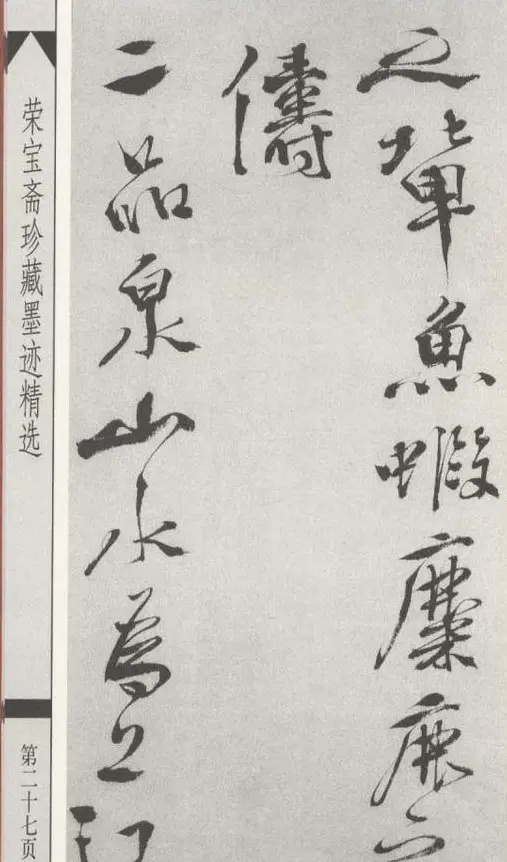 之輩魚蝦麋鹿
儔
二品泉山水為上江
荣宝斋珍藏墨迹精选
第二十七页